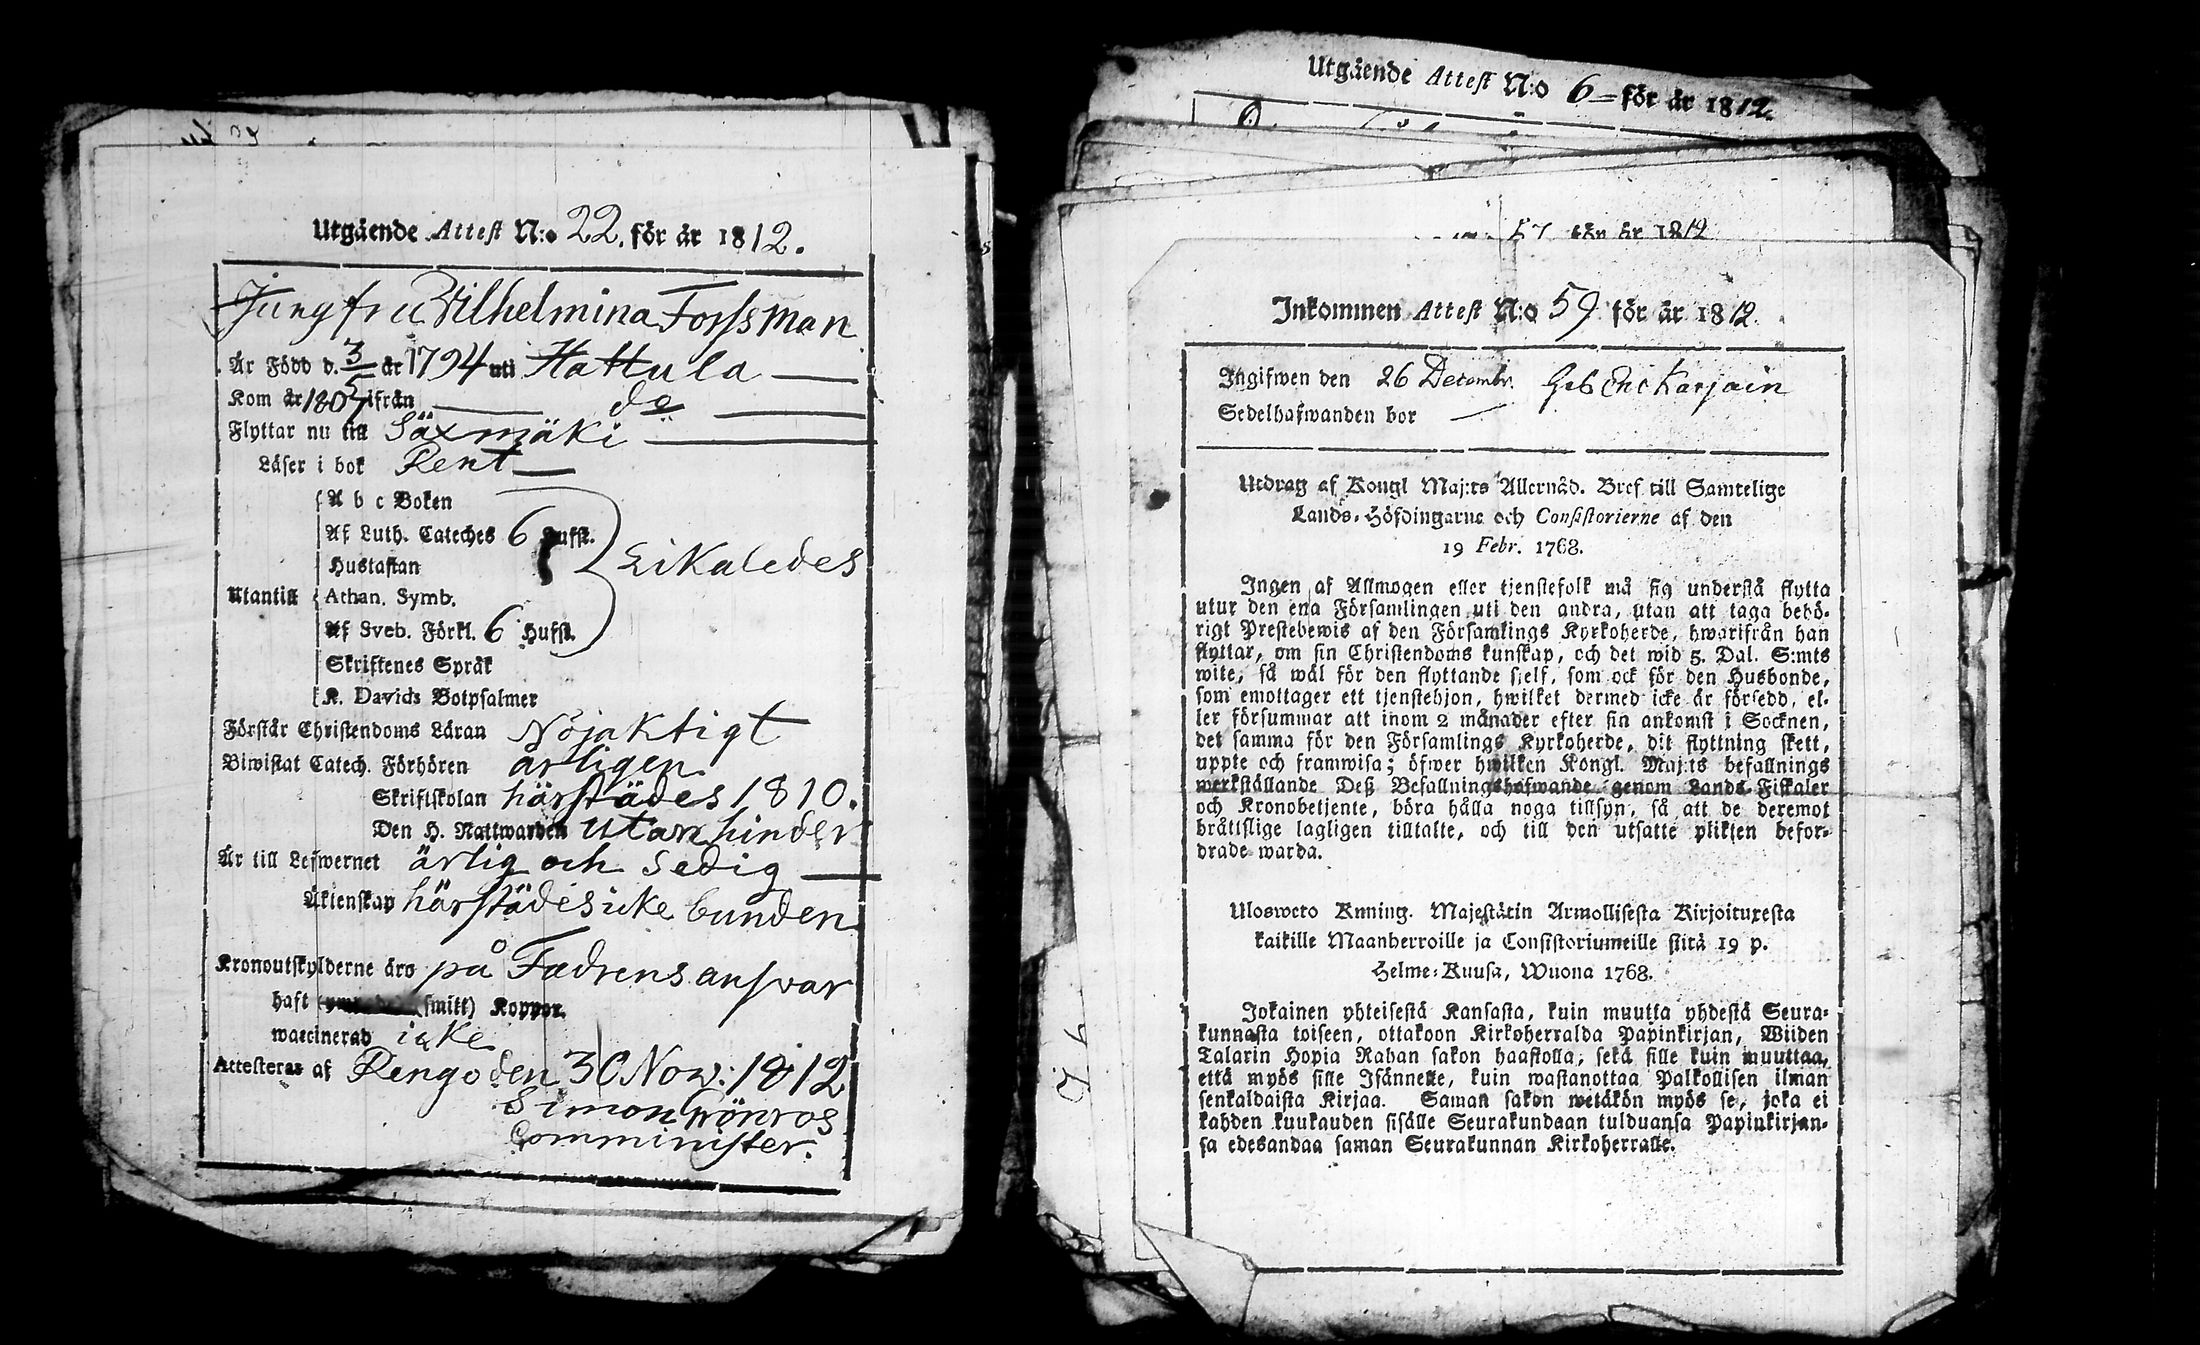 Utgående Attest N:o 22. för år 1812.
Jungfru Vilhelmina Forssman
Är Född d. 3/5 år 1794 uti Hattula
Kom år 1805 ifrån do
Flyttar nu till Säxmäki
Läser i bok Rent
A b c Boken
Af Luth. Cateches 6 Hufst.
Hustaflan
Likaledes
Utantill Athan. Symb.
Af Sveb. Förkl. 6 Hufst.
Skriftenes Språk
K. Davids Botpsalmer
Förstår Christendoms Läran Nöjaktigt
Biwistat Catech. Förhören årligen
Skriftskolan härstädes 1810.
Den H. Nattwarden utan hinder
Är till Lefwernet ärlig och sedig
Äktenskap härstädes icke bunden
Kronoutskylderne äro på Fædrens answar
haft (smitt) Koppor.
waccinerad icke
Attesteras af Rengo den 30 Nov: 1812
Simon Grönros
Comminister.
Utgående Attest N:o 6 för år 1812.
57 för år 1812
Inkommen Attest N:o 59 för år 1812.
Ingifwen den 26 Decembr.
Sedelhafwanden bor
Utdrag af Kongl Maj:ts Allernåd. Bref till Samtelige
Lands-Höfdingarne och Consistorierne af den
19 Febr. 1768.
Ingen af Allmogen eller tjenstefolk må sig understå flytta
utur den ena Församlingen uti den andra, utan att taga behö-
rigt Prestebewis af den Församlings Kyrkoherde, hwarifrån han
flyttar, om sin Christendoms kunskap, och det wid 5. Dal. S:mts
wite, så wäl för den flyttande sjelf, som ock för den Husbonde,
som emottager ett tjenstehjon, hwilket dermed icke är försedd, el-
ler försummar att inom 2 månader efter sin ankomst i Socknen,
det samma för den Församlings Kyrkoherde, dit flyttning skett,
uppte och framwisa; öfwer hwilken Kongl. Maj:ts befallnings
werkställande Deß Befallningshafwande genom Lands-Fiskaler
och Kronobetjente, böra hålla noga tillsyn, så att de deremot
bråttslige lagligen tilltalte, och till den utsatte plikten befor-
drade warda.
Ulosweto Kuning. Majestätin Armollisesta Kirjoituxesta
kaikille Maanherroille ja Consistoriumeille siitä 19 p.
Helme-Kuusa, Wuona 1768.
Jokainen yhteisestä Kansasta, kuin muutta yhdestä Seura-
kunnasta toiseen, ottakoon Kirkoherralda Papinkirjan, Wiiden
Talarin Hopia Rahan sakon haastolla, sekä sille kuin muuttaa,
että myös sille Isännelle, kuin wastanottaa Palkollisen ilman
senkaldaista Kirjaa. Saman sakon wetäkön myös se, joka ei
kahden kuukauden sisälle Seurakundaan tulduansa Papinkirjan-
sa edesandaa saman Seurakunnan Kirkoherralle.